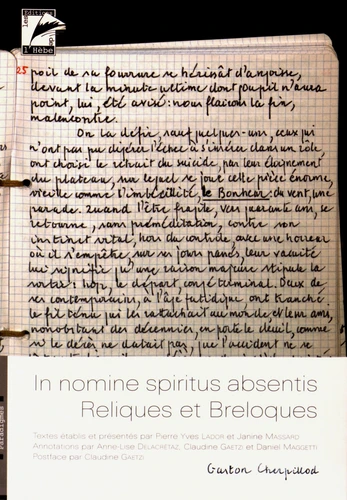 les Editions
de
l'Hèbe
25 poil de sa fourrure se hérissât d'angoisse,
devant la minute ultime dont pourpil n'aura
point, lui, été avisé : nous flairons la fin,
malencontre.
On la défie, sauf quelques-uns, ceux qui
n'ont pas pu digérer l'échec à s'insérer dans un rôle,
ont choisi le retrait du suicide, par leur éloignement
du plateau, sur lequel se joue cette pièce énorme,
vieille comme l'imbécillité, le Bonheur : du vent, une
parade. Quand l'être fragile, vers quarante ans, se
retourne, sans préméditation, contre son
instinct vital, hors du contrôle, avec une horreur
où il s'empêtre, sur ses jours passés, leur vacuité
lui signifie qu'une raison majeure stipule la
sortie : hop, le départ, congé terminal. Deux de
ses contemporains, à l'âge fatidique ont tranché
le fil ténu qui les rattachait au monde, et leur ami,
nonobstant des décennies, en porte le deuil, comme
si le décès ne datait pas, que l'accident ne se
In nomine spiritus absentis
Reliques et Breloques
Textes établis et présentés par Pierre Yves LADOR et Janine MASSARD
Annotations par Anne-Lise DELACRÉTAZ, Claudine GAETZI et Daniel MAGGETTI
Postface par Claudine GAETZI
Gaston Cherpillod
Paradigmes